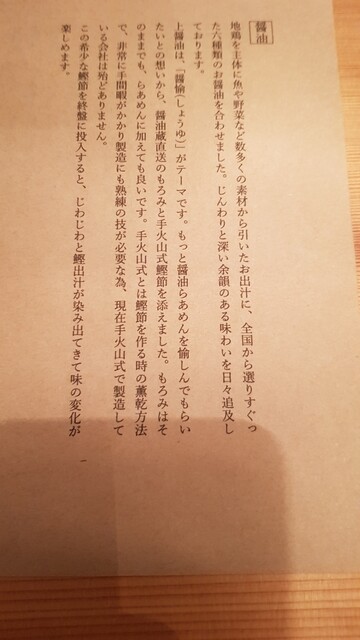 醤油
地鶏を主体に魚や野菜など数多くの素材から引いたお出汁に、全国から選りすぐっ
た六種類のお醤油を合わせました。じんわりと深い余韻のある味わいを日々追及し
ております。
上醤油は、「醤愉(しょうゆ)」がテーマです。もっと醤油らあめんを愉しんでもらい
たいとの想いから、醤油蔵直送のもろみと手火山式鰹節を添えました。もろみはそ
のままでも、らあめんに加えても良いです。手火山式とは鰹節を作る時の薫乾方法
で、非常に手間暇がかかり製造にも熟練の技が必要な為、現在手火山式で製造して
いる会社は殆どありません。
この希少な鰹節を終盤に投入すると、じわじわと鰹出汁が染み出てきて味の変化が
楽しめます。